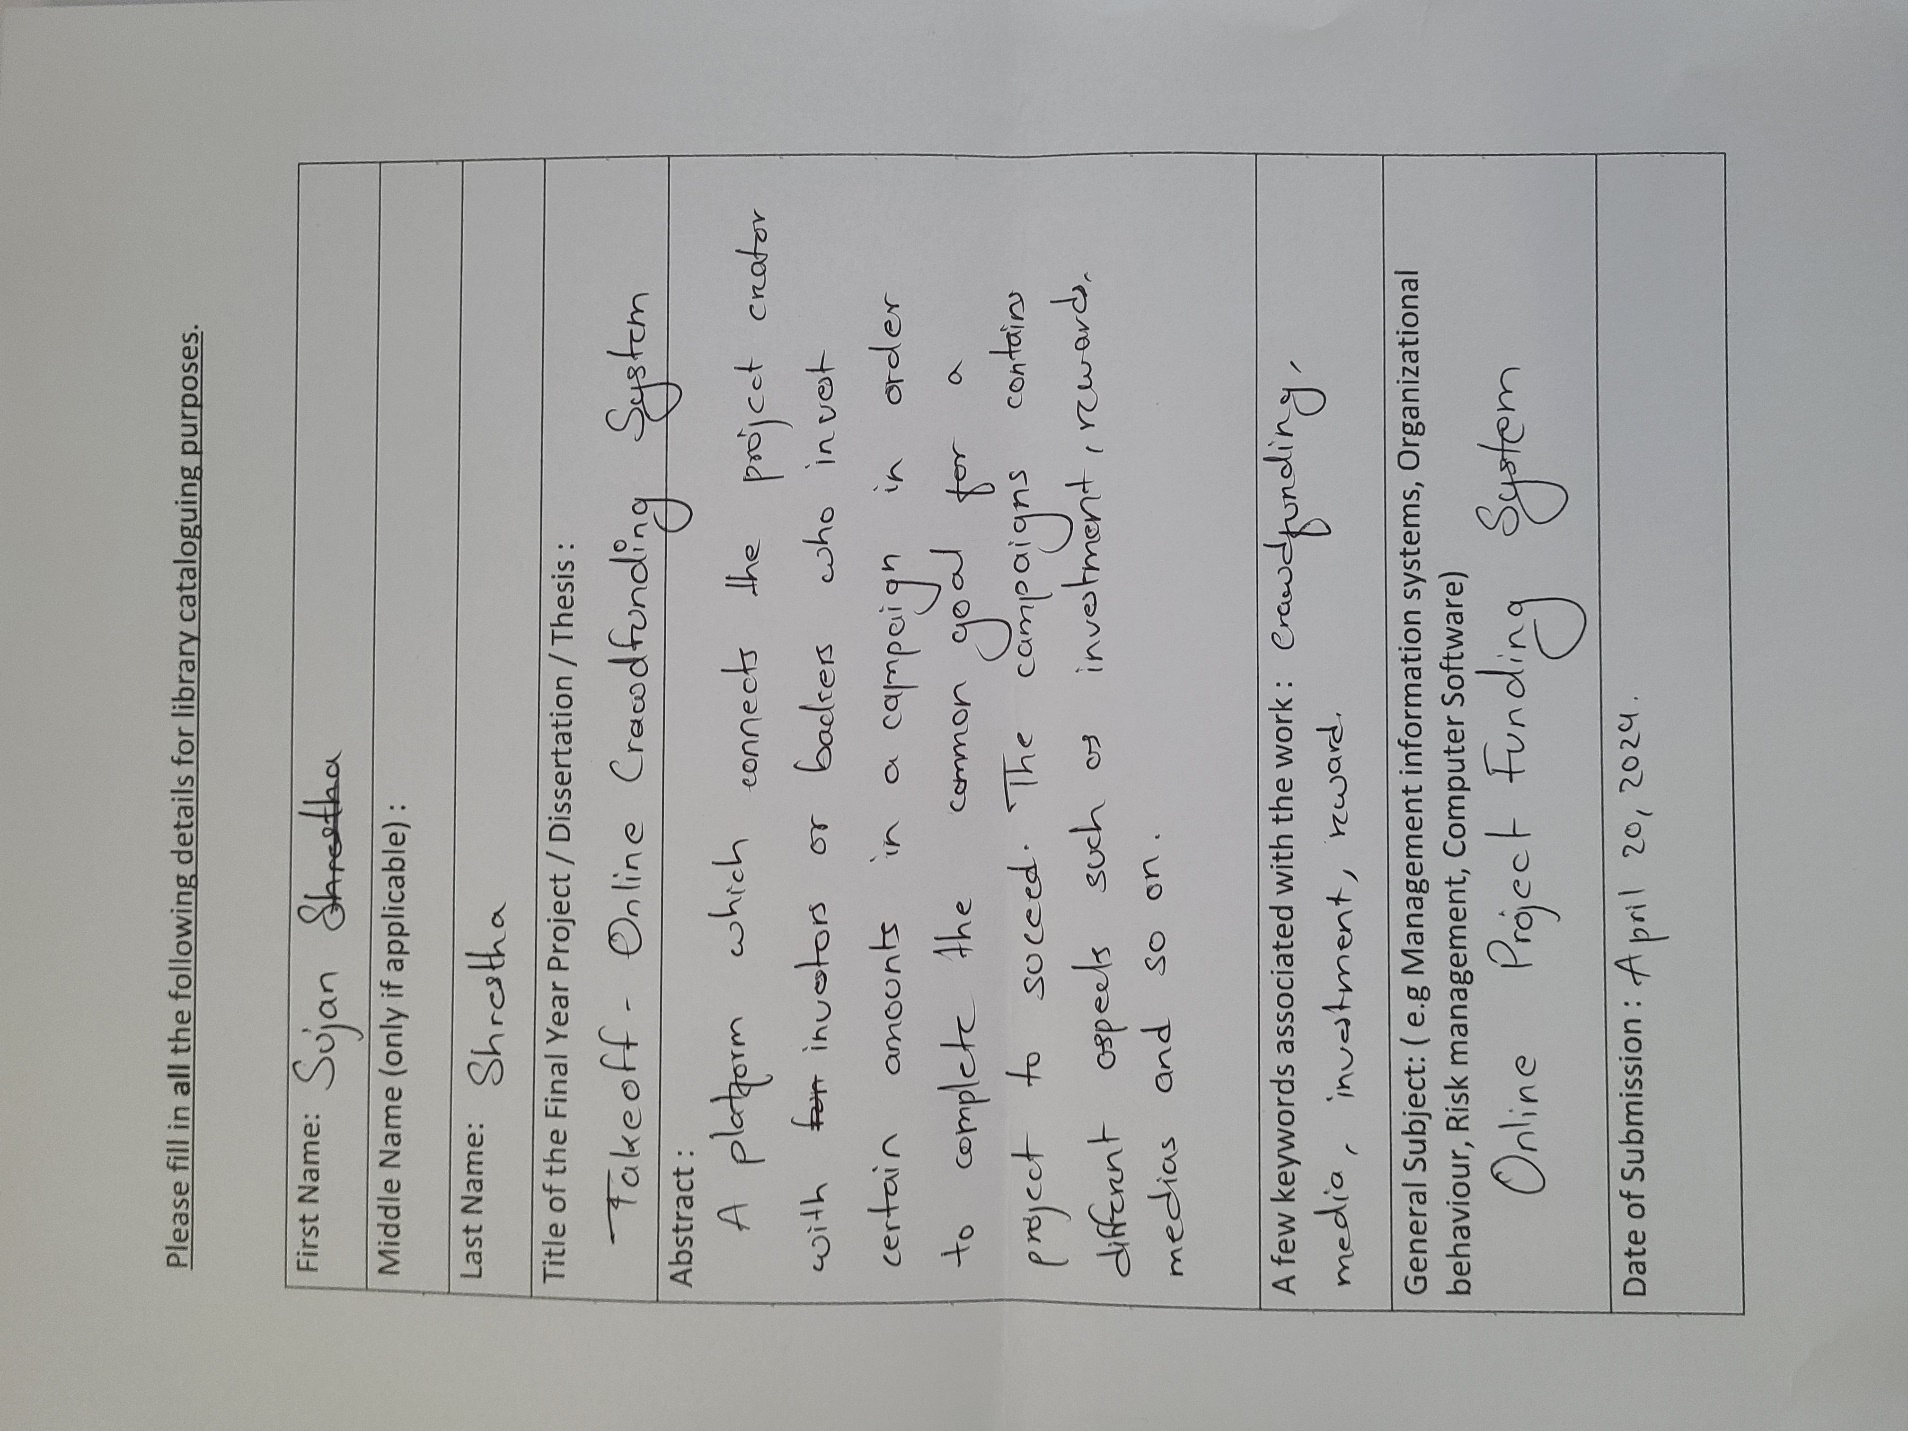 Please fill in all the following details for library cataloguing purposes.
First Name: Sujan Shrestha
Middle Name (only if applicable) :
Last Name: Shrestha
Title of the Final Year Project / Dissertation / Thesis :
Takeoff - Online Crowdfunding System
Abstract :
A platform which connects the project creator
with investors or backers who invest
certain amounts in a campaign in order
to complete the common goal for a
project to succeed. The campaigns contains
different aspects such as investment, rewards,
medias and so on.
A few keywords associated with the work : crowdfunding,
media, investment, reward.
General Subject: ( e.g Management information systems, Organizational
behaviour, Risk management, Computer Software)
Online Project Funding System
Date of Submission : April 20, 2024.